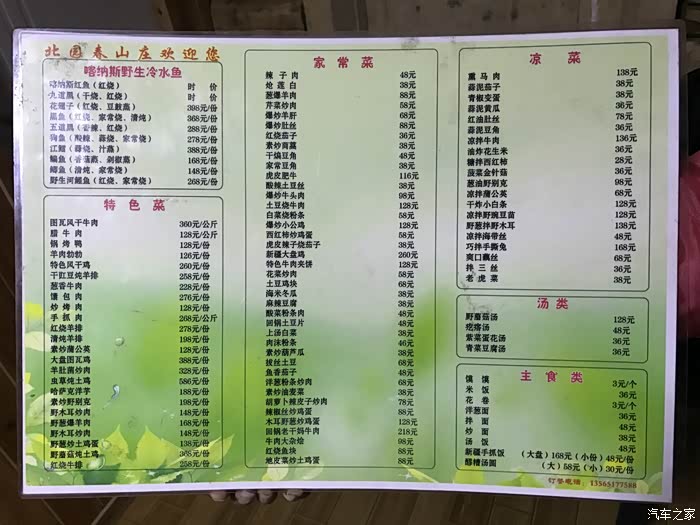 北园春山庄欢迎您
喀纳斯野生冷水鱼
喀纳斯红鱼(红烧) 时价
九道黑(干烧、红烧) 时价
花翅子(红烧、豆豉蒸) 398元/份
黑鱼(红烧、家常烧、清炖) 368元/份
五道黑(香辣、红烧) 288元/份
狗鱼(酸辣、蒜烧、家常烧) 278元/份
江鳕(蒜烧、汁蒸) 388元/份
鳊鱼(香菇蒸、剁椒蒸) 168元/份
鲫鱼(清炖、家常烧) 148元/份
野生河鲤鱼(红烧、家常烧) 268元/份
特色菜
图瓦风干牛肉 360元/公斤
腊牛肉 128元/公斤
锅烤鸭 128元/份
羊肉勃勃 126元/份
特色风干鸡 260元/份
干豇豆炖羊排 258元/份
葱香牛肉 228元/份
馕包肉 276元/份
炒烤肉 128元/份
手抓肉 268元/公斤
红烧羊排 278元/份
清炖羊排 198元/份
素炒蒲公英 128元/份
大盘图瓦鸡 388元/份
羊肚菌炒肉 328元/份
虫草炖土鸡 586元/份
哈萨克洋芋 188元/份
素炒野别克 198元/份
野木耳炒肉 168元/份
野葱爆羊肉 168元/份
野木耳炒肉 148元/份
野葱炒土鸡蛋 138元/份
野蘑菇炖土鸡 358元/份
红烧牛排 258元/份
家常菜
辣子肉 48元
炝莲白 38元
葱爆羊肉 88元
芹菜炒肉 58元
爆炒羊肝 68元
爆炒肚丝 88元
红烧茄子 36元
素炒商藁 38元
干煸豆角 48元
家常豆角 38元
虎皮肥牛 116元
酸辣土豆丝 38元
爆炒牛头肉 98元
土豆烧牛肉 128元
白菜烧粉条 58元
爆炒小公鸡 128元
西红柿炒鸡蛋 58元
虎皮辣子烧茄子 38元
新疆大盘鸡 260元
特色牛肉夹饼 128元
花菜炒肉 58元
土豆鸡块 68元
海米冬瓜 38元
麻辣豆腐 38元
酸菜粉条肉 48元
回锅土豆片 48元
上汤白菜 38元
肉沫粉条 46元
素炒葫芦瓜 38元
拔丝土豆 68元
鱼香茄子 48元
洋葱粉条炒肉 68元
素炒油麦菜 38元
胡萝卜辣皮子炒肉 78元
辣椒丝炒鸡蛋 88元
木耳野葱炒鸡蛋 128元
回锅老干妈牛肉 218元
牛肉大杂烩 98元
红烧鱼块 88元
地皮菜炒土鸡蛋 88元
凉菜
熏马肉 138元
蒜泥茄子 38元
青椒变蛋 38元
蒜泥黄瓜 36元
红油肚丝 78元
蒜泥豆角 36元
凉拌牛肉 136元
油炸花生米 36元
糖拌西红柿 28元
菠菜金针菇 36元
葱油野别克 98元
凉拌蒲公英 68元
干炸小白条 128元
凉拌野豌豆苗 128元
野葱拌野木耳 138元
凉拌海带丝 48元
巧拌手撕兔 168元
爽口藕丝 68元
拌三丝 36元
老虎菜 38元
汤类
野蘑菇汤 128元
疙瘩汤 48元
紫菜蛋花汤 36元
青菜豆腐汤 36元
主食类
馍馍 3元/个
米饭 36元
花卷 3元/个
洋葱面 38元
拌面 48元
炒面 38元
汤饭 48元
新疆手抓饭 (大盘)168元(小份)48元/份
醪糟汤圆 (大)58元(小)30元/份
订餐电话:13565177588
汽车之家